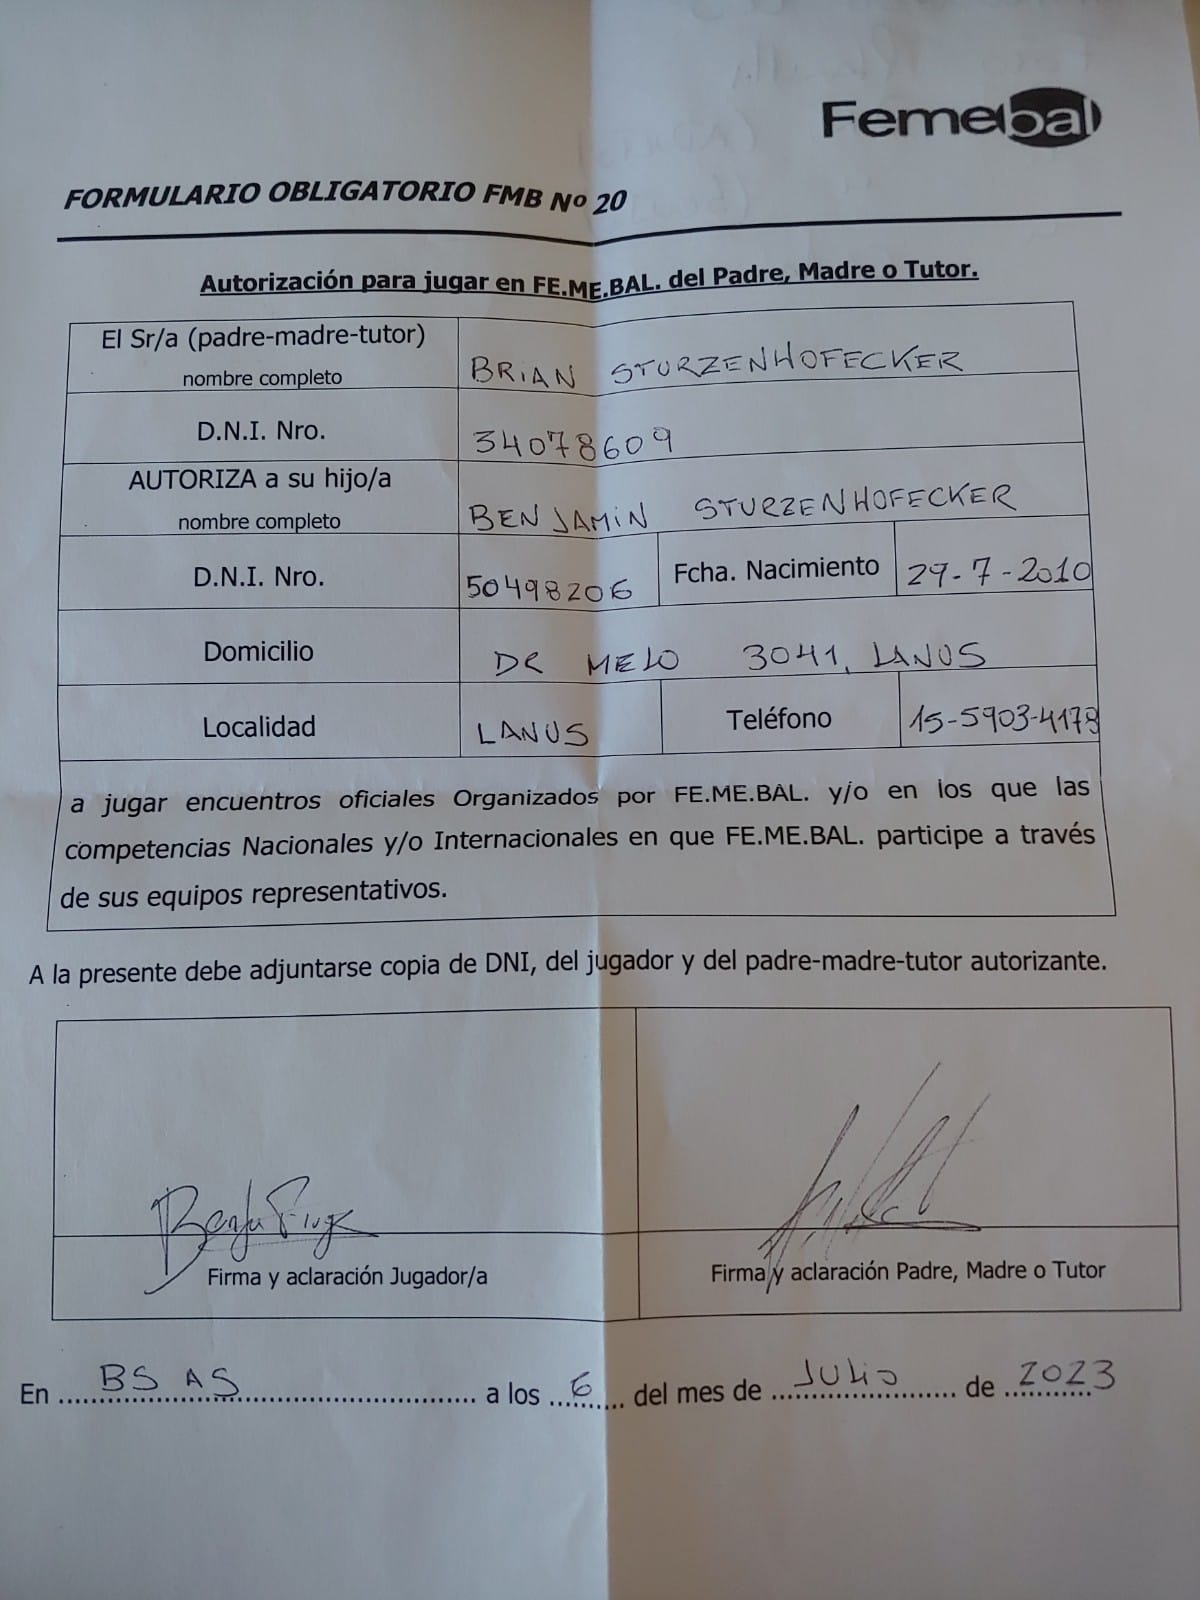 Femebal
FORMULARIO OBLIGATORIO FMB Nº 20
Autorización para jugar en FE.ME.BAL. del Padre, Madre o Tutor.
El Sr/a (padre-madre-tutor)
nombre completo
BRIAN STURZENHOFECKER
D.N.I. Nro.
34078609
AUTORIZA a su hijo/a
nombre completo
BENJAMIN STURZENHOFECKER
D.N.I. Nro.
50498206
Fcha. Nacimiento
29-7-2010
Domicilio
DR MELO 3041, LANUS
Localidad
LANUS
Teléfono
15-5903-4178
a jugar encuentros oficiales Organizados por FE.ME.BAL. y/o en los que las
competencias Nacionales y/o Internacionales en que FE.ME.BAL. participe a través
de sus equipos representativos.
A la presente debe adjuntarse copia de DNI, del jugador y del padre-madre-tutor autorizante.
Firma y aclaración Jugador/a
Firma y aclaración Padre, Madre o Tutor
En BS AS a los 6 del mes de JULIO de 2023